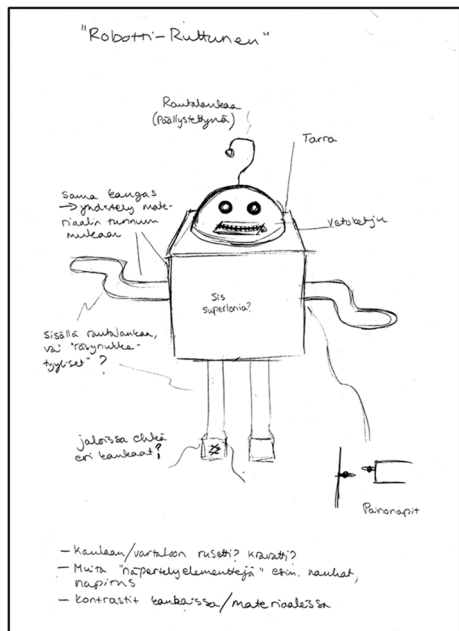 "Robotti-Ruttunen"
Rautalankaa
(Päällystettynä)
Tarra
sama kangas
→ yhdistely mate-
riaalin tunnun
mukaan
vetoketju
Sis
superlonia?
Sisällä rautalankaa,
vai "räsynukke-
tyyliset"?
jaloissa ehkä
eri kankaat?
Painonapit
- Kaulaan/vartaloon rusetti? kravatti?
- Muita "näpertelyelementtejä" esim. nauhat,
- Kontrastit kankaissa/materiaaleissa